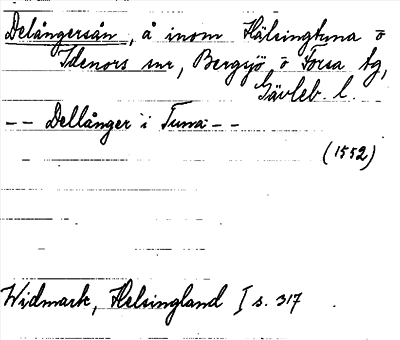 Delångersån, å inom Hälsingtuna o
Idenors snr, Bergsjö o Forsa tg,
Gävleb. l.
-- Dellånger i Tuna --
(1552)
Widmark, Helsingland I s. 317